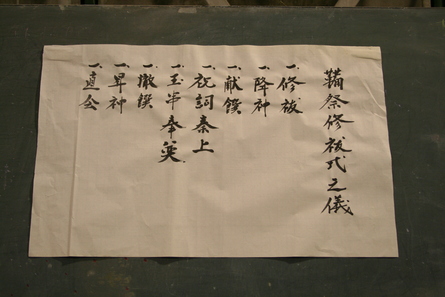 鞴祭修祓式之儀
一、修祓
一、降神
一、献饌
一、祝詞奏上
一、玉串奉奠
一、撤饌
一、昇神
一、直会